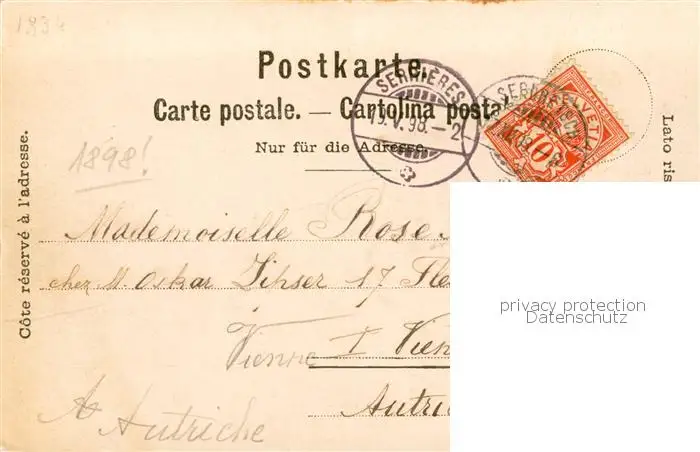 1834
Postkarte.
Carte postale. — Cartolina postal
Nur für die Adresse.
SERRIÈRES
V.98.–2
HELVETIA
10
1898!
Côte réservé à l'adresse.
Lato ris
Mademoiselle Rose
chez M. Oskar Lipser 17
Vienne I Vien
Autric
A Autriche
privacy protection
Datenschutz